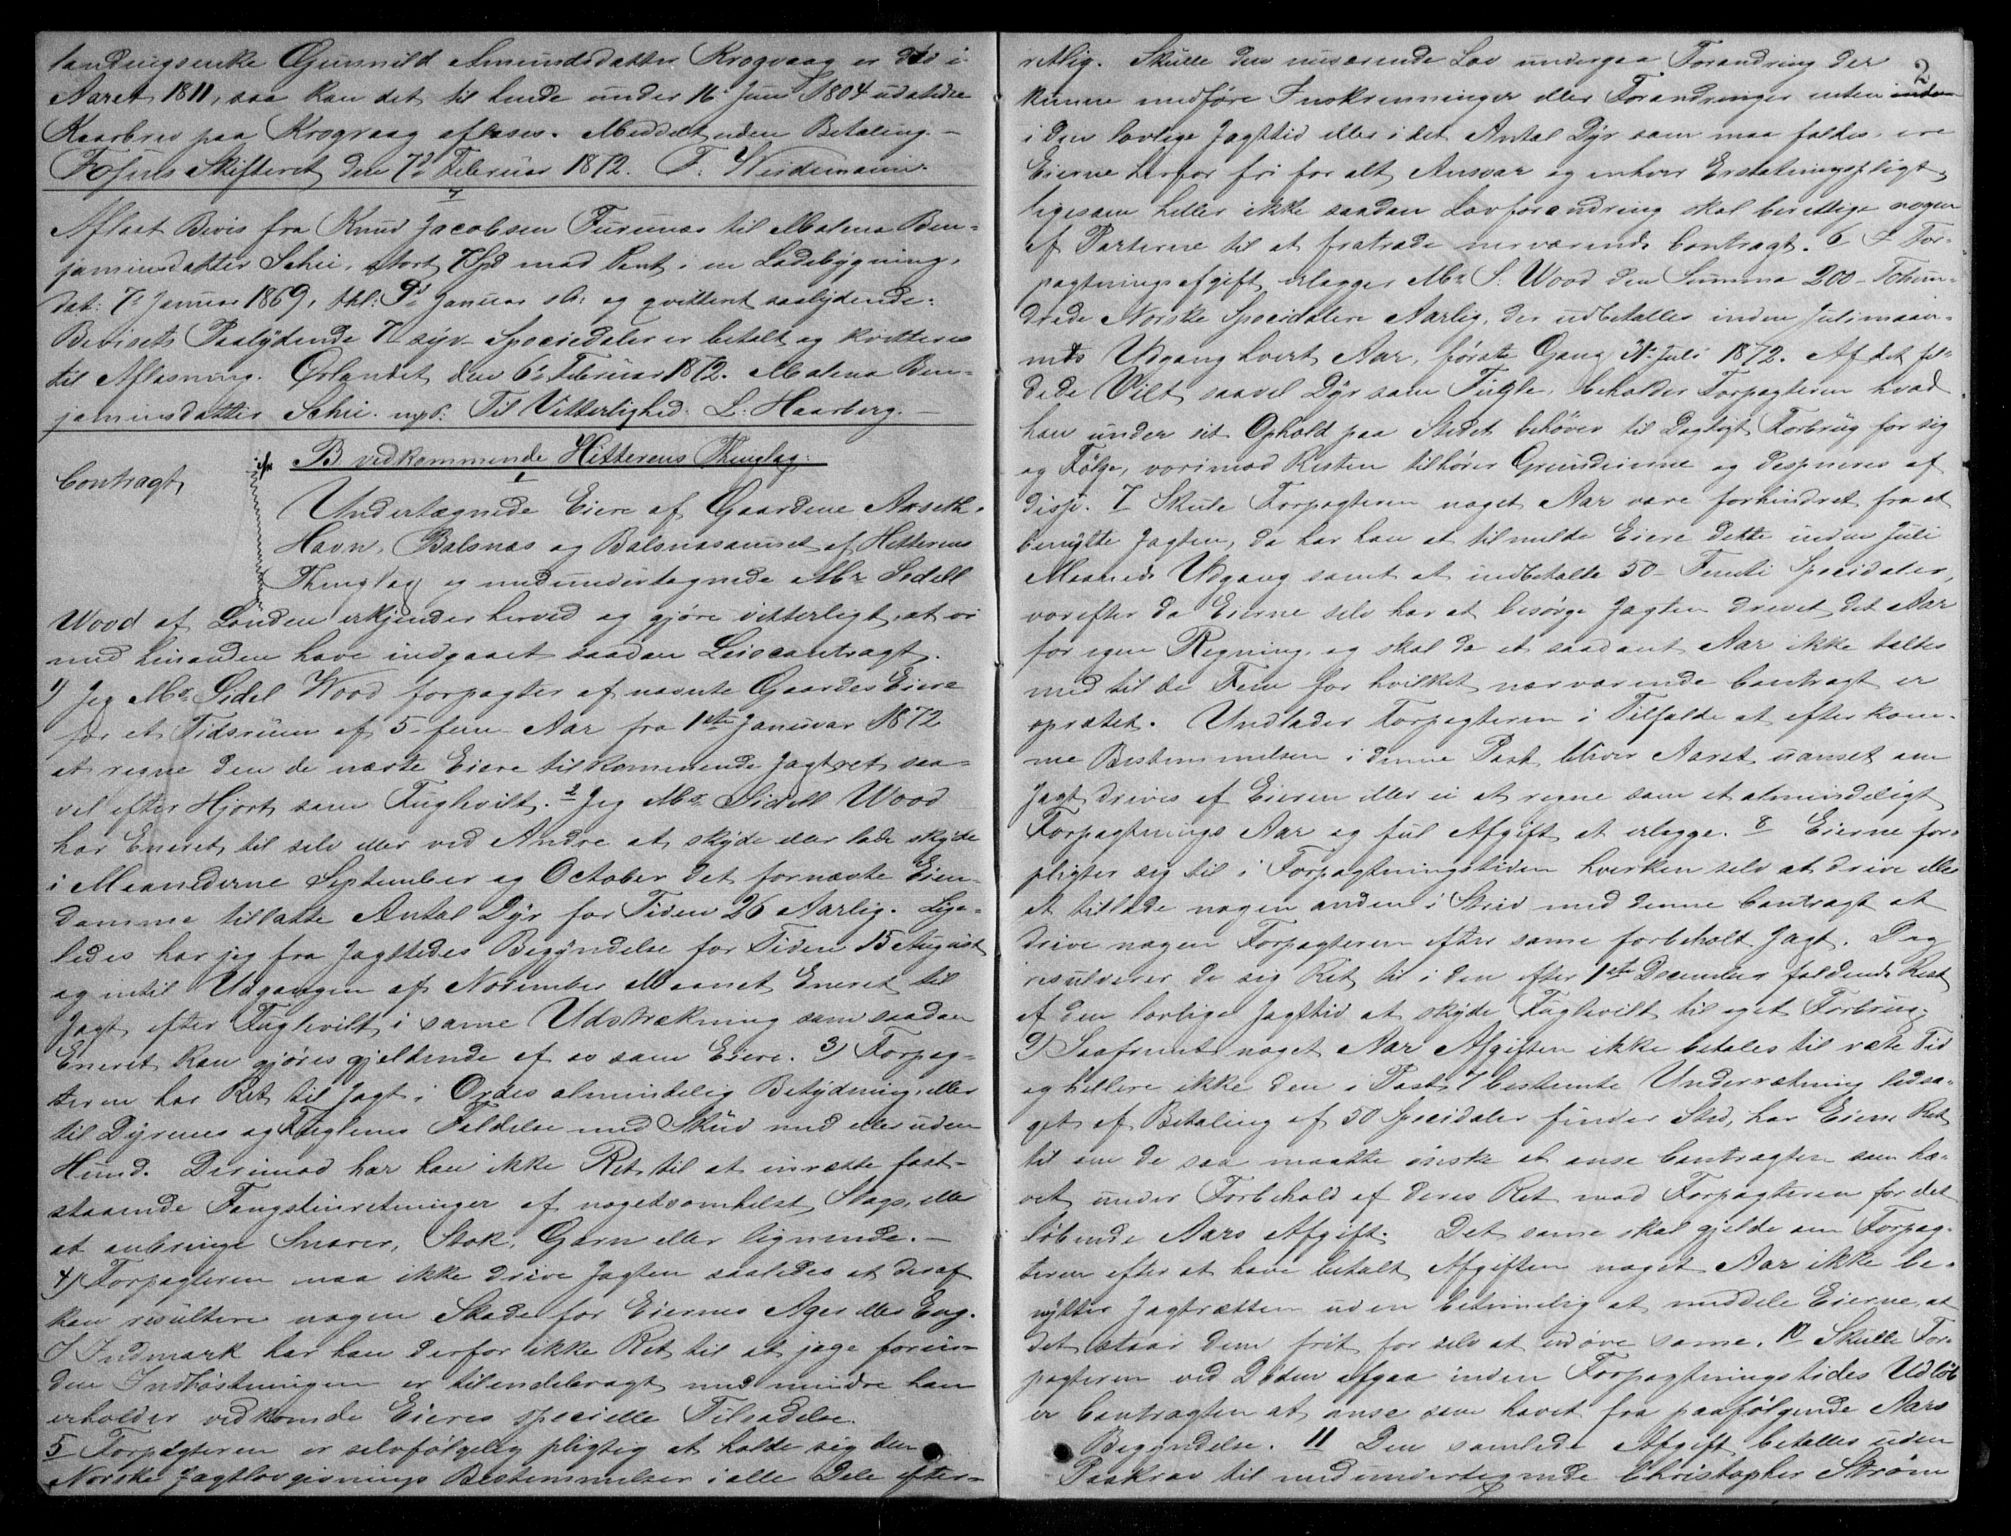 landingsenke Gunnild Amundsdatter Krogvaag er død i
Aaret 1811, saa kan det til hende under 16 Juni 1804 udstedte
Kaarbrev paa Krogvaag aflæses. Meddelt uden Betaling. –
Fosens Skifteret den 7d Februar 1872. F. Weidemann.
7
Aflæst Bevis fra Knud Jacobsen Furunæs til Malena Ben=
jaminsdatter Schei, stort 7 Spd mod Pant i en Ladebygning,
dat: 7 Januar 1869, thl: Januar s. A: og qvitteret saalydende:
Bevisets Paalydende 7 syv Speciedaler er betalt og kvitteres
til Aflæsning. Ørlandet den 6te Februar 1872. Malena Ben=
jaminsdatter Schei. m.p.: Til Vitterlighed. L. Haarberg. –
B vedkommende Hitterens Thinglag:
Contragt,
1
Undertegnede Eiere af Gaardene Aaseth,
Havn, Balsnæs og Balsnæsaunet af Hitterens
Thinglag og medundertegnede Mr. Sidell
Wood af London erkjender herved og gjøre vitterligt, at vi
med hinanden have indgaaet saadan Leiecontragt.
1) Jeg Mr. Sidel Wood forpagter af nævnte Gaardes Eiere
for et Tidsrum af 5 – fem – Aar fra 1ste Januar 1872
at regne den de nævte Eiere tilkommende Jagtret saa=
vel efter Hjort som Fuglevilt. 2 Jeg Mr. Sidell Wood
har Eneret til selv eller ved Andre at skyde eller lade skyde
i Maanederne September og October det fornævte Eien=
domme tillatte Antal Dyr for Tiden 26 Aarlig. Lige=
ledes har jeg fra Jagttides Begyndelse for Tiden 15 August
og intil Udgangen af November Maanet Eneret til
Jagt efter Fuglevilt i same Udstrækning som saadan
Eneret kan gjøres gjeldende af os som Eiere. 3) Forpag=
teren har Ret til Jagt i Ordes almindelig Betydning, eller
til Dyrenes og Fuglenes Fældelse med Skud med eller uden
Hund. Derimod har han ikke Ret til at inrætte fast=
staaende Fangstinretninger af nogetsomhelst Slags, eller
at anbringe Snarer, Stok, Garn eller lignende. –
4) Forpagteren maa ikke drive Jagten saaledes at deraf
kan resultere nogen Skade for Eiernes Ager eller Eng.
I Indmark har han derfor ikke Ret til at jage forin=
den Indhøstningen er tilendebragt med mindre han
erholder vedkomde Eieres specielle Tilladelse.
5 Forpagteren er selvfølgelig pligtig at holde sig den
Norske Jagtlovgivnings Bestemmelser i alle Dele efter=
2
retlig. Skulle den nuværende Lov undergaa Forandring der
kunne medføre Inskrenninger eller Forandringer enten inden
i den lovlige Jagttid eller i det Antal Dyr som maa fældes, ere
Eierne herfor fri for alt Ansvar og enhver Erstatningspligt
ligesom heller ikke saadan Lovforandring skal berettige nogen
af Parterne til at fratræde nerværende Contragt. 6 I For=
pagtningsafgift erlægger Mr. S. Wood den Summa 200 – Tohun=
drede Norske Specidalere Aarlig, der udbetalles inden Julimaan=
nets Udgang hvert Aar, første Gang 31te Juli 1872. Af det fel=
dede Vilt saavel Dyr som Fugle, beholder Forpagteren hvad
han under sit Ophold paa Stedet behøver til Dagligt Forbrug for sig
og Følge, vorimod Resten tilhører Grundeierne og disponeres af
disse. 7 Skule Forpagteren noget Aar være forhindret fra at
benytte Jagten, da har han at tilmelde Eiere dette inden Juli
Maaneds Udgang samt at indbetalte 50 – Femti Specidaler,
vorefter da Eierne selv har at besørge Jagten drevet det Aar
for egen Regning, og skal da et saadant Aar ikke tælles
med til de Fem for hvilket nærværende Contragt er
oprætet. Undlader Forpagteren i Tilfælde at efterkom=
me Bestemmelsen i denne Post, bliver Aaret uanset om
Jagt drives af Eieren eller ei at regne som et almindeligt
Forpagtnings Aar og ful Afgift at erlægge. 8 Eierne for=
pligter sig til i Forpagtningstiden hverken selv at drive eller
at tillade nogen anden i Strid med denne Contragt at
drive nogen Forpagteren efter same forbeholt Jagt. Dog
reserverer de sig Ret til i den efter 1ste December faldende Rest
af den lovlige Jagttid at skyde Fuglevilt til eget Forbrug.
9) Saafremt noget Aar Afgiften ikke betales til rete Tid
og hellere ikke den i Post 7 bestemte Underrætning ledsa=
get af Betaling af 50 Specidaler finder Sted, har Eierne Ret
til om de saa maatte ønske at anse Contragten som hæ=
vet under Forbehold af deres Ret mod Forpagteren for det
løbende Aars Afgift. Det same skal gjelde om Forpag=
teren efter at have betalt Afgiften noget Aar ikke be=
nytter Jagtrætten uden betimelig at meddele Eierne, at
det staar dem frit for selv at udøve same. 10 Skulle For=
pagteren ved Døden afgaa inden Forpagtningstides Udløb
er Contragten at anse som hævet fra paafølgende Aars
Begyndelse. 11 Den samlede Afgift betalles uden
Paakrav til medundertegnede Christopher Strøm